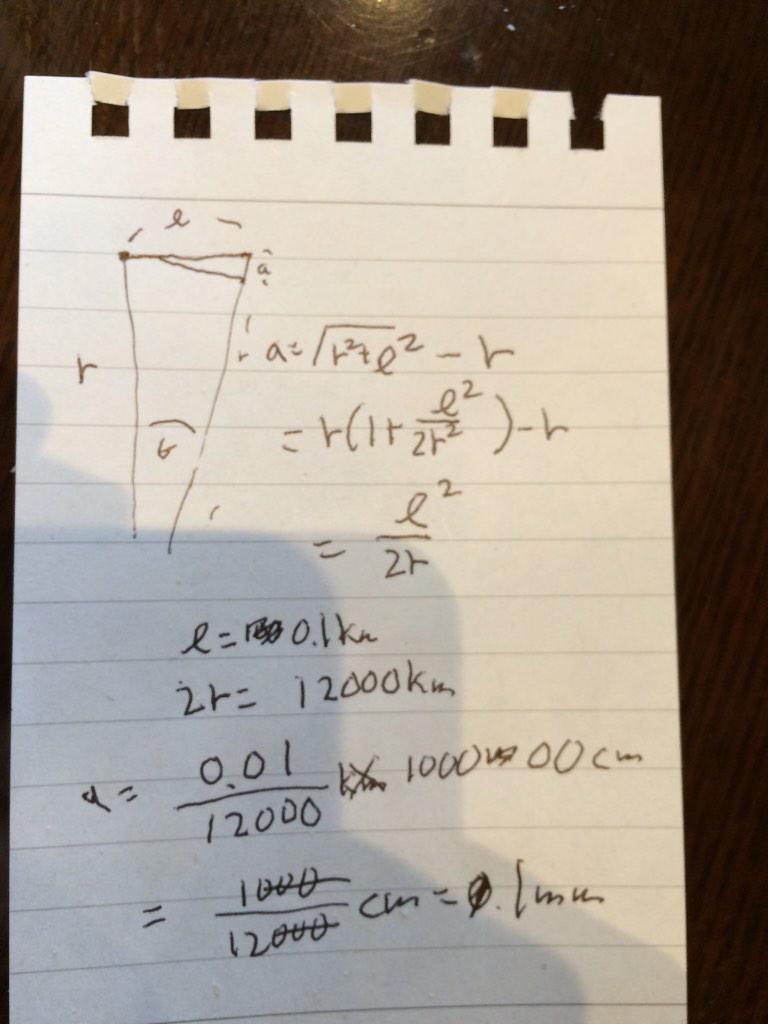 l
a
r
r
a = √(r²+l²) - r
θ
= r(1+ l²/2r²) - r
= l²/2r
l = 0.1km
2r = 12000km
a = 0.01/12000 100000cm
= 1000/12000 cm = .1mm